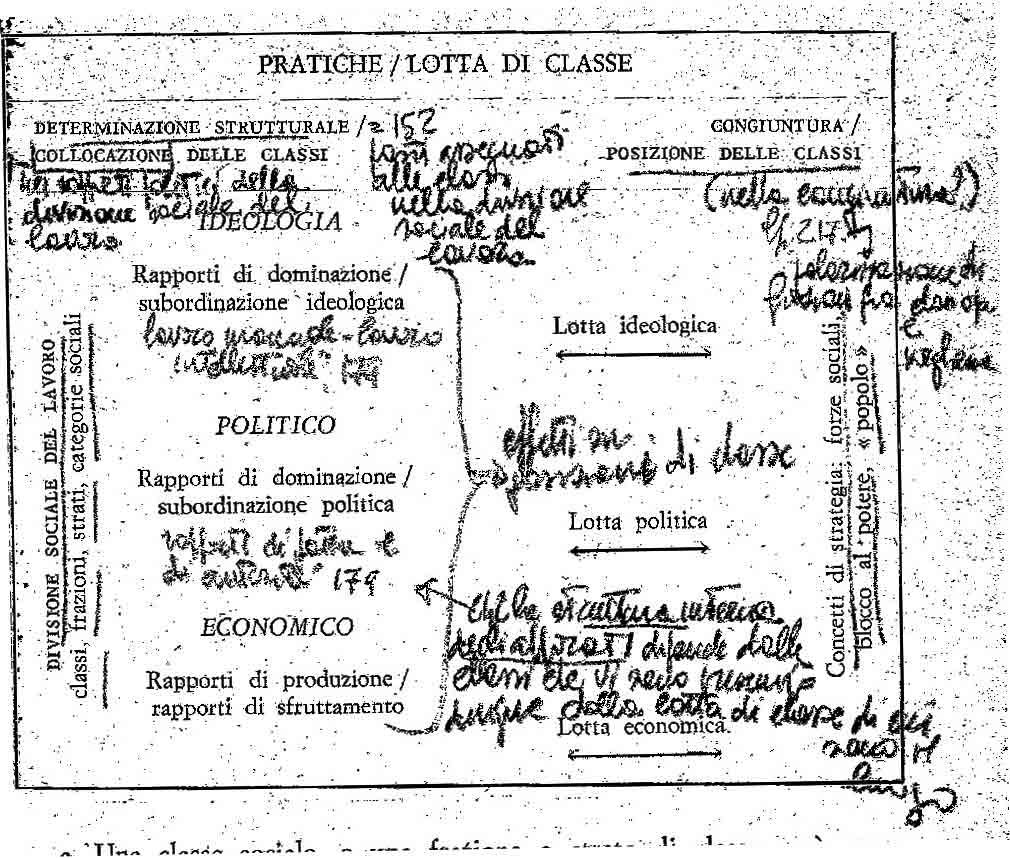 PRATICHE / LOTTA DI CLASSE
DETERMINAZIONE STRUTTURALE /
COLLOCAZIONE DELLE CLASSI
= 152
posti assegnati
alle classi
nella divisione
sociale del
lavoro.
CONGIUNTURA /
POSIZIONE DELLE CLASSI
(nella congiuntura?)
cf. 217
della
divisione sociale del
lavoro
IDEOLOGIA
Rapporti di dominazione /
subordinazione ideologica
lavoro manuale - lavoro
intellettuale, 179
Lotta ideologica
POLITICO
effetti
di classe
Rapporti di dominazione /
subordinazione politica
rapporti di
di autorità" 179
Lotta politica
ECONOMICO
Rapporti di produzione /
rapporti di sfruttamento
che la struttura interna
degli apparati dipende dalle
classi che vi sono
dunque dalla lotta di classe di cui
sono il
luogo
Lotta economica.
DIVISIONE SOCIALE DEL LAVORO
classi, frazioni, strati, categorie sociali
Concetti di strategia: forze sociali,
blocco al potere, « popolo »
Una classe sociale, o una frazione o strato di